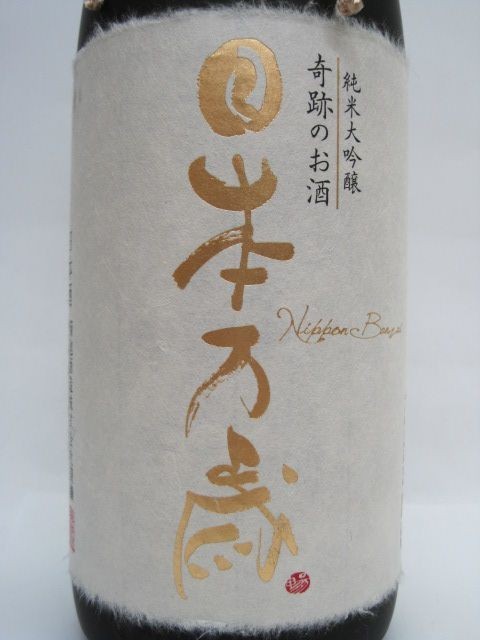 純米大吟醸
奇跡のお酒
日本万歳
Nippon